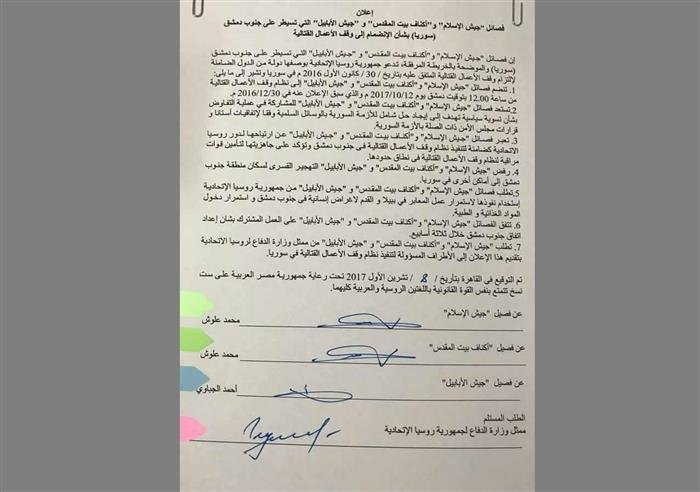 إعلان
فصائل "جيش الإسلام" و"أكناف بيت المقدس" و "جيش الأبابيل" التي تسيطر على جنوب دمشق
(سوريا) بشأن الإنضمام إلى وقف الأعمال القتالية
إن فصائل "جيش الإسلام" و"أكناف بيت المقدس" و "جيش الأبابيل" التي تسيطر على جنوب دمشق
(سوريا) والموضحة بالخريطة المرفقة، تدعو جمهورية روسيا الإتحادية بوصفها دولة من الدول الضامنة
لإلتزام وقف الأعمال القتالية المتفق عليه بتاريخ / 30 / كانون الأول 2016 م في سوريا وتشير إلى ما يلي:
1. تنضم فصائل "جيش الإسلام" و"أكناف بيت المقدس" و "جيش الأبابيل" إلى نظام وقف الأعمال القتالية
من ساعة 12.00 بتوقيت دمشق يوم 2017/10/12 م والذي سبق الإعلان عنه في 2016/12/30 م.
2. تستعد فصائل "جيش الإسلام" و"أكناف بيت المقدس" و "جيش الأبابيل" للمشاركة في عملية التفاوض
بشأن تسوية سياسية تهدف إلى إيجاد حل شامل للأزمة السورية بالوسائل السلمية وفقا لإتفاقيات أستانا و
قرارات مجلس الأمن ذات الصلة بالأزمة السورية.
3. تعبر فصائل "جيش الإسلام" و"أكناف بيت المقدس" و "جيش الأبابيل" عن ارتياحها لدور روسيا
الإتحادية كضامنة لتنفيذ نظام وقف الأعمال القتالية في جنوب دمشق وتؤكد على جاهزيتها لتأمين قوات
مراقبة لنظام وقف الأعمال القتالية في نطاق حدودها.
4. رفض "جيش الإسلام" و"أكناف بيت المقدس" و "جيش الأبابيل" التهجير القسرى لسكان منطقة جنوب
دمشق إلى أماكن أخرى في سوريا.
5. تطلب فصائل "جيش الإسلام" و"أكناف بيت المقدس" و "جيش الأبابيل" من جمهورية روسيا الإتحادية
إستخدام نفوذها لاستمرار عمل المعابر في ببيلا و القدم لاغراض إنسانية فى جنوب دمشق و استمرار دخول
المواد الغذائية و الطبية.
6. تتفق الفصائل "جيش الإسلام" و"أكناف بيت المقدس" و "جيش الأبابيل" على العمل المشترك بشان إعداد
اتفاق جنوب دمشق خلال ثلاثة أسابيع.
7. تطلب "جيش الإسلام" و"أكناف بيت المقدس" و "جيش الأبابيل" من ممثل وزارة الدفاع لروسيا الاتحادية
بتقديم هذا الإعلان إلى الأطراف المسؤولة لتنفيذ نظام وقف الأعمال القتالية في سوريا.
تم التوقيع في القاهرة بتأريخ / 8 / تشرين الأول 2017 تحت رعاية جمهورية مصر العربية على ست
نسخ تتمتع بنفس القوة القانونية باللغتين الروسية والعربية كليهما.
عن فصيل "جيش الإسلام"
محمد علوش
عن فصيل "أكناف بيت المقدس"
محمد علوش
عن فصيل "جيش الأبابيل"
أحمد الجباوي
الطلب المستلم
ممثل وزارة الدفاع لجمهورية روسيا الإتحادية